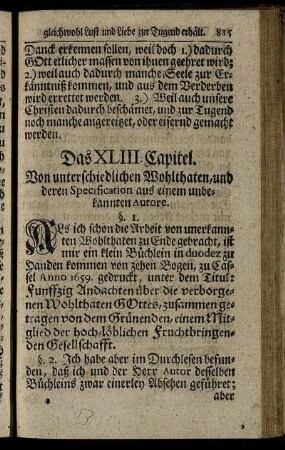 gleichwohl Lust und Liebe zur Tugend erhält. 815
Danck erkennen sollen, weil doch 1.) dadurch
GOtt etlicher massen von ihnen geehret wird;
2.) weil auch dadurch manche Seele zur Er-
känntniß kommen, und aus dem Verderben
wird errettet werden. 3.) Weil auch unsere
Christen dadurch beschämet, und zur Tugend
noch manche angereitzet, oder eifernd gemacht
werden.
Das XLIII. Capitel.
Von unterschiedlichen Wohlthaten, und
deren Specification aus einem unbe-
kannten Autore.
§. 1.
ALs ich schon die Arbeit von unerkann-
ten Wohlthaten zu Ende gebracht, ist
mir ein klein Büchlein in duodez zu
Handen kommen von zehen Bogen, zu Cas-
sel Anno 1659. gedruckt, unter dem Titul:
Funffzig Andachten über die verborge-
nen Wohlthaten GOttes, zusammen ge-
tragen von dem Grünenden, einem Mit-
glied der hoch-löblichen Fruchtbringen-
den Gesellschafft.
§. 2. Ich habe aber im Durchlesen befun-
den, daß ich und der Herr Autor desselben
Büchleins zwar einerley Absehen geführet;
aber